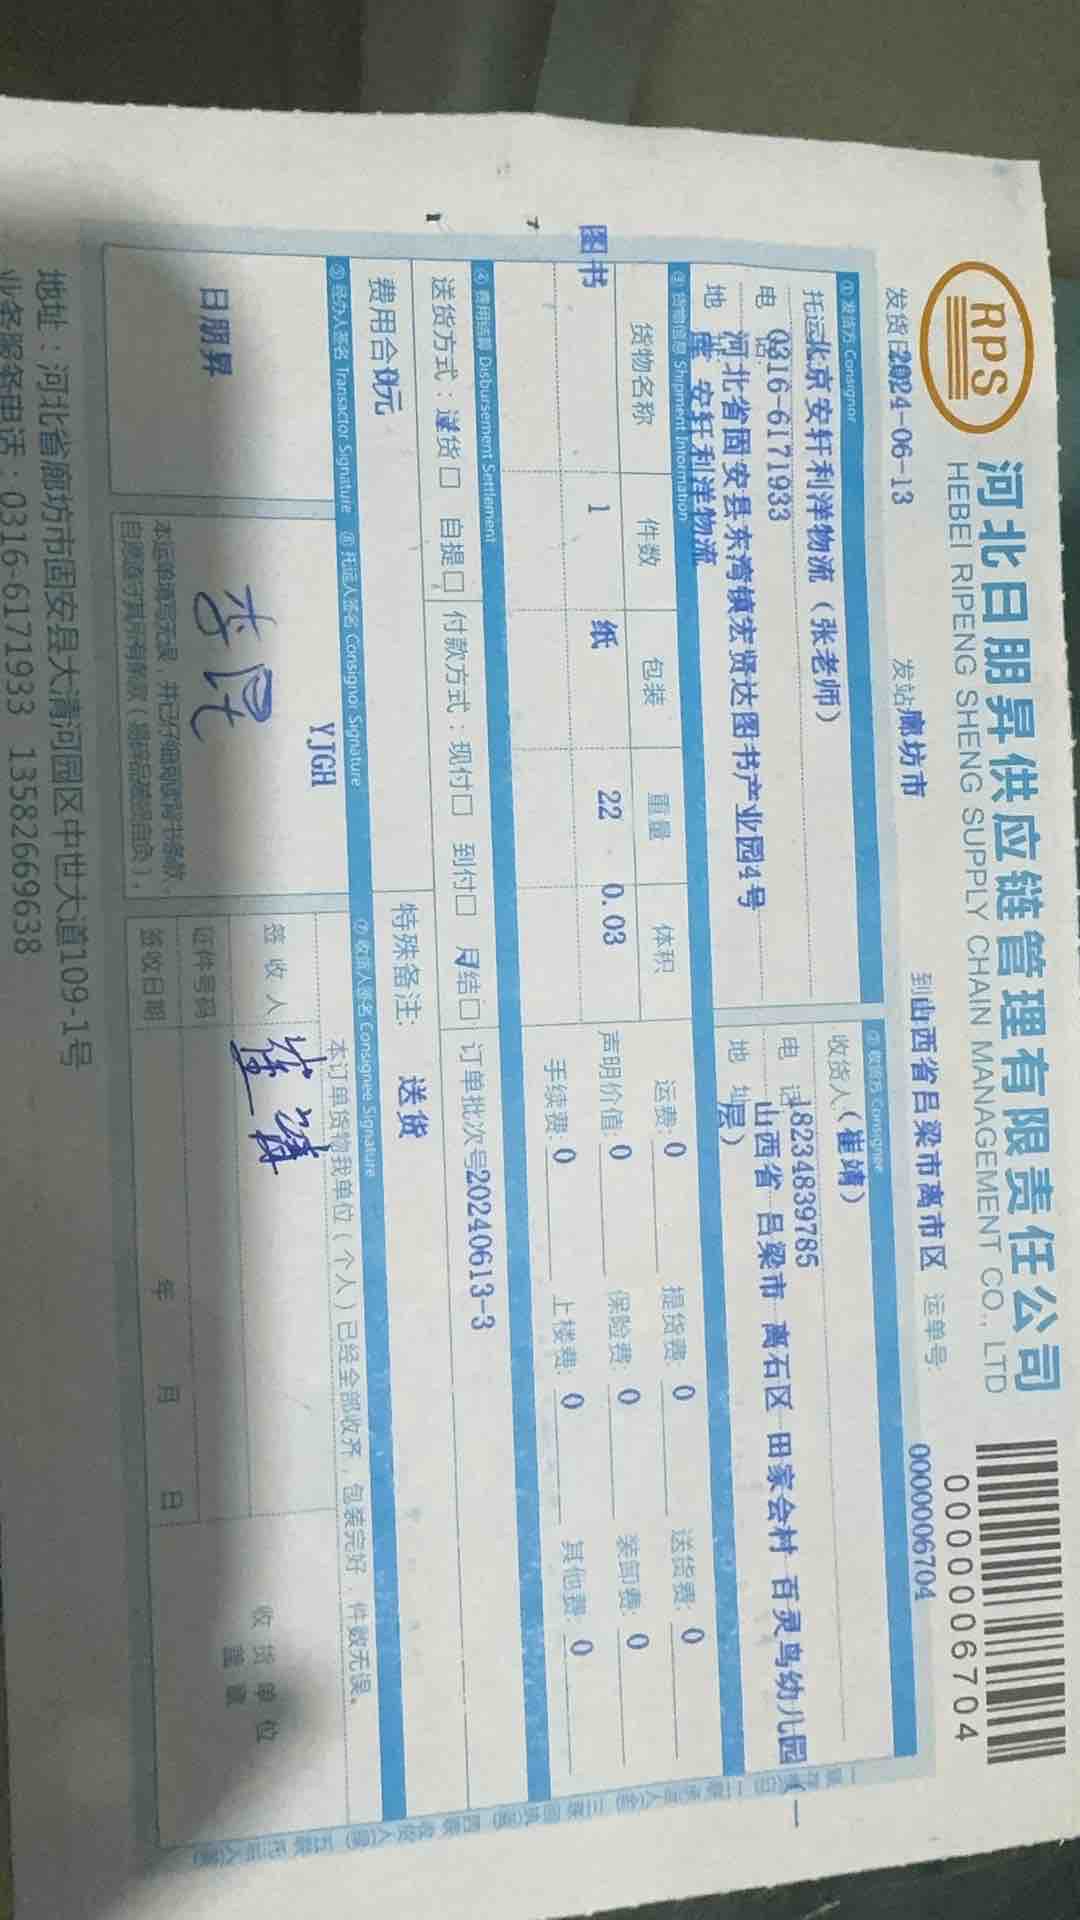 RPS
河北日朋昇供应链管理有限责任公司
HEBEI RIPENG SHENG SUPPLY CHAIN MANAGEMENT CO., LTD
0000006704
发货日 2024-06-13 发站 廊坊市 到 山西省吕梁市离市区 运单号: 0000006704
① 发货方 Consignor
托运 北京安轩利洋物流（张老师）
电 话: 0316-6171933
地 河北省固安县东湾镇宏贤达图书产业园4号
库 安轩利洋物流
② 收货方 Consignee
收货人 （崔靖）
电 话 18234839785
地 址 山西省 吕梁市 离石区 田家会村 百灵鸟幼儿园（一
层）
③ 货物信息 Shipment Information
货物名称 件数 包装 重量 体积
图书 1 纸 22 0.03
运费: 0 提货费: 0 送货费: 0
声明价值: 0 保险费: 0 装卸费: 0
手续费: 0 上楼费: 0 其他费: 0
④ 费用结算 Disbursement Settlement
送货方式：送货□ 自提□ 付款方式：现付□ 到付□ 月结□ 订单批次号 20240613-3
费用合 0元
特殊备注: 送货
⑤ 经办人签名 Transactor Signature ⑥ 托运人签名 Consignor Signature ⑦ 收货人签名 Consignee Signature
日朋昇
YJGH
本运单填写无误，并已仔细阅读背书条款，
本订单货物我单位（个人）已经全部收齐，包装完好，件数无误。
签 收 人 崔靖
证件号码
签收日期 年 月 日
收 货 单 位
盖 章
地址：河北省廊坊市固安县大清河园区中世大道109-1号
业务服务电话：0316-6171933 13582669638